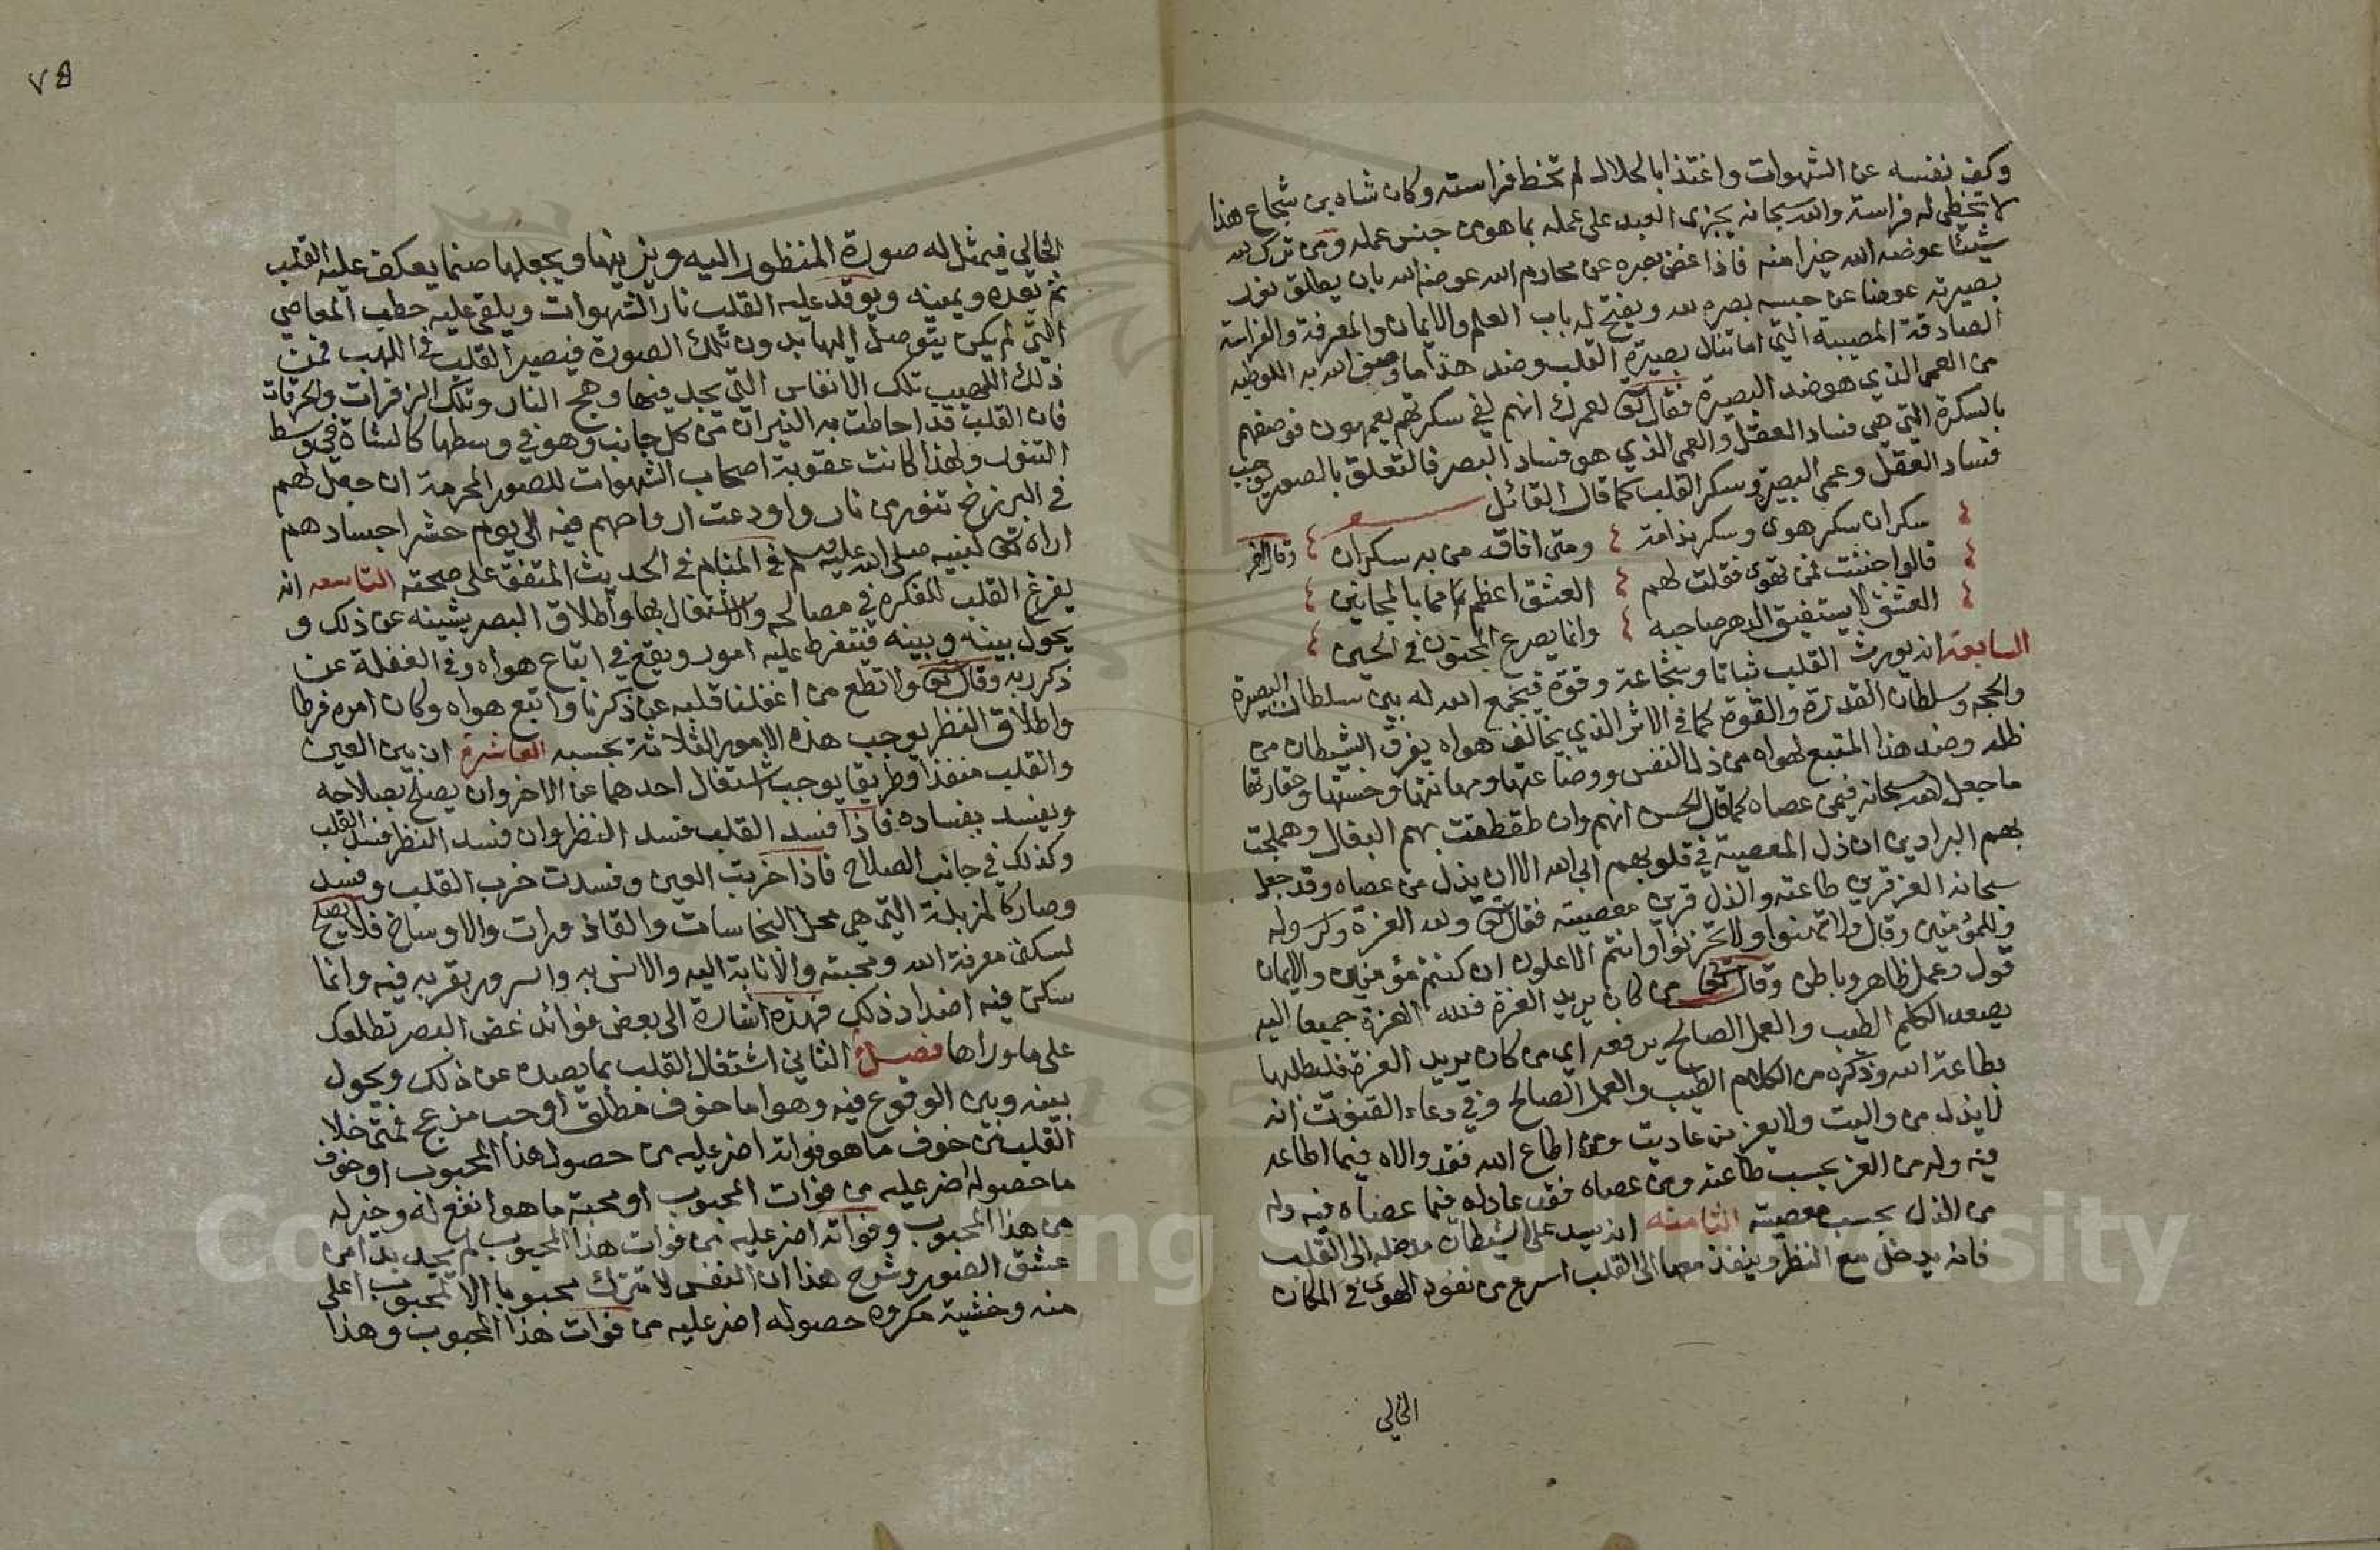 وكف نفسه عن الشهوات واغتذا بالحلال لم تخط فراسته وكان شاه بن شجاع هذا
لا تخطى له فراسة والله سبحانه يجزي العبد على عمله بما هو من جنس عمله ومن ترك لله
شيئا عوضه الله خيرا منه فاذا غض بصره عن محارم الله عوضه الله بان يطلق نور
بصيرته عوضا عن حبسه بصره لله ويفتح له باب العلم والايمان والمعرفة والفراسة
الصادقة المصيبه التي انما تنال ببصيرة القلب وضد هذا ما وصف الله به اللوطيه
من العمه الذي هو ضد البصيرة فقال تعالى لعمرك انهم لفي سكرتهم يعمهون فوصفهم
بالسكرة التي هي فساد العقل والعمى الذي هو فساد البصر فالتعلق بالصور يوجب
فساد العقل وعمى البصيرة وسكر القلب كما قال القائل
سكران سكر هوى وسكر مدامة ومتى افاقه من به سكران وقال الاخر
قالوا جننت بمن تهوى فقلت لهم العشق اعظم مما بالمجانين
العشق لا يستفيق الدهر صاحبه وانما يصرع المجنون في الحين
السابعة انه يورث القلب ثباتا وشجاعة وقوة فيجمع الله له بين سلطان البصيرة
والحجه وسلطان القدرة والقوة كما في الاثر الذي يخالف هواه يفرق الشيطان من
ظله وضد هذا المتبع لهواه من ذل النفس ووضاعتها ومهانتها وخستها وحقارتها
ما جعل الله سبحانه فيمن عصاه كما قال الحسن انهم وان طقطقت بهم البغال وهملجت
بهم البراذين ان ذل المعصية في قلوبهم ابى الله الا ان يذل من عصاه وقد جعل
سبحانه العز قرين طاعته والذل قرين معصيته فقال تعالى ولله العزة ولرسوله
وللمؤمنين وقال ولا تهنوا ولا تحزنوا وانتم الاعلون ان كنتم مؤمنين والايمان
قول وعمل ظاهر وباطن وقال تعالى من كان يريد العزة فلله العزة جميعا اليه
يصعد الكلم الطيب والعمل الصالح يرفعه اي من كان يريد العزة فليطلبها
بطاعة الله وذكره من الكلم الطيب والعمل الصالح وفي دعاء القنوت انه
لا يذل من واليت ولا يعز من عاديت ومن اطاع الله فقد والاه فيما اطاعه
فيه وله من العز بحسب طاعته ومن عصاه فقد عاداه فيما عصاه فيه وله
من الذل بحسب معصيته الثامنه انه يسد على الشيطان مدخله الى القلب
فانه يدخل مع النظر وينفذ معها الى القلب اسرع من نفوذ الهوى في المكان
الخالي
٧٥
الخالي فيمثل له صورة المنظور اليه ويزينها ويجعلها صنما يعكف عليه القلب
ثم يعده ويمنيه ويوقد عليه القلب نار الشهوات ويلقي عليه حطب المعاصي
التي لم يكن يتوصل اليها بدون تلك الصورة فيصير القلب في اللهب فمن
ذلك اللهيب تلك الانفاس التي يجد فيها وهج النار وتلك الزفرات والحرقات
فان القلب قد احاطت به النيران من كل جانب وهو في وسطها كالشاة في وسط
التنور ولهذا كانت عقوبة اصحاب الشهوات للصور المحرمة ان جعل لهم
في البرزخ تنور من نار واودعت ارواحهم فيه الى يوم حشر اجسادهم
اراه تعالى لنبيه صلى الله عليه وسلم في المنام في الحديث المتفق على صحته التاسعه انه
يفرغ القلب للفكره في مصالحه والاشتغال بها واطلاق البصر يشينه عن ذلك و
يحول بينه وبينه فينفرط عليه اموره ويقع في اتباع هواه وفي الغفلة عن
ذكر ربه وقال تعالى ولا تطع من اغفلنا قلبه عن ذكرنا واتبع هواه وكان امره فرطا
واطلاق النظر يوجب هذه الامور الثلاثة بحسبه العاشرة ان بين العين
والقلب منفذا وطريقا يوجب اشتغال احدهما عن الاخر وان يصلح بصلاحه
ويفسد بفساده فاذا فسد القلب فسد النظر وان فسد النظر فسد القلب
وكذلك في جانب الصلاح فاذا خربت العين وفسدت خرب القلب وفسد
وصار كالمزبلة التي هي محل النجاسات والقاذورات والاوساخ فلا يصلح
لسكنى معرفة الله ومحبته والانابة اليه والانس به والسرور بقربه فيه وانما
سكن فيه اضداد ذلك فهذه اشارة الى بعض فوائد غض البصر تطلعك
على ما وراها فصل الثاني اشتغال القلب بما يصده عن ذلك ويحول
بينه وبين الوقوع فيه وهو اما خوف مقلق او حب مزعج فمتى خلا
القلب من خوف ما هو فواته اضر عليه من حصول هذا المحبوب او خوف
ما حصوله اضر عليه من فوات المحبوب او محبة ما هو انفع له وخير له
من هذا المحبوب وفواته اضر عليه من فوات هذا المحبوب لم يجد بدا من
عشق الصور وشرح هذا ان النفس لا تترك محبوبا الا لمحبوب اعلى
منه وخشية مكروه حصوله اضر عليه من فوات هذا المحبوب وهذا